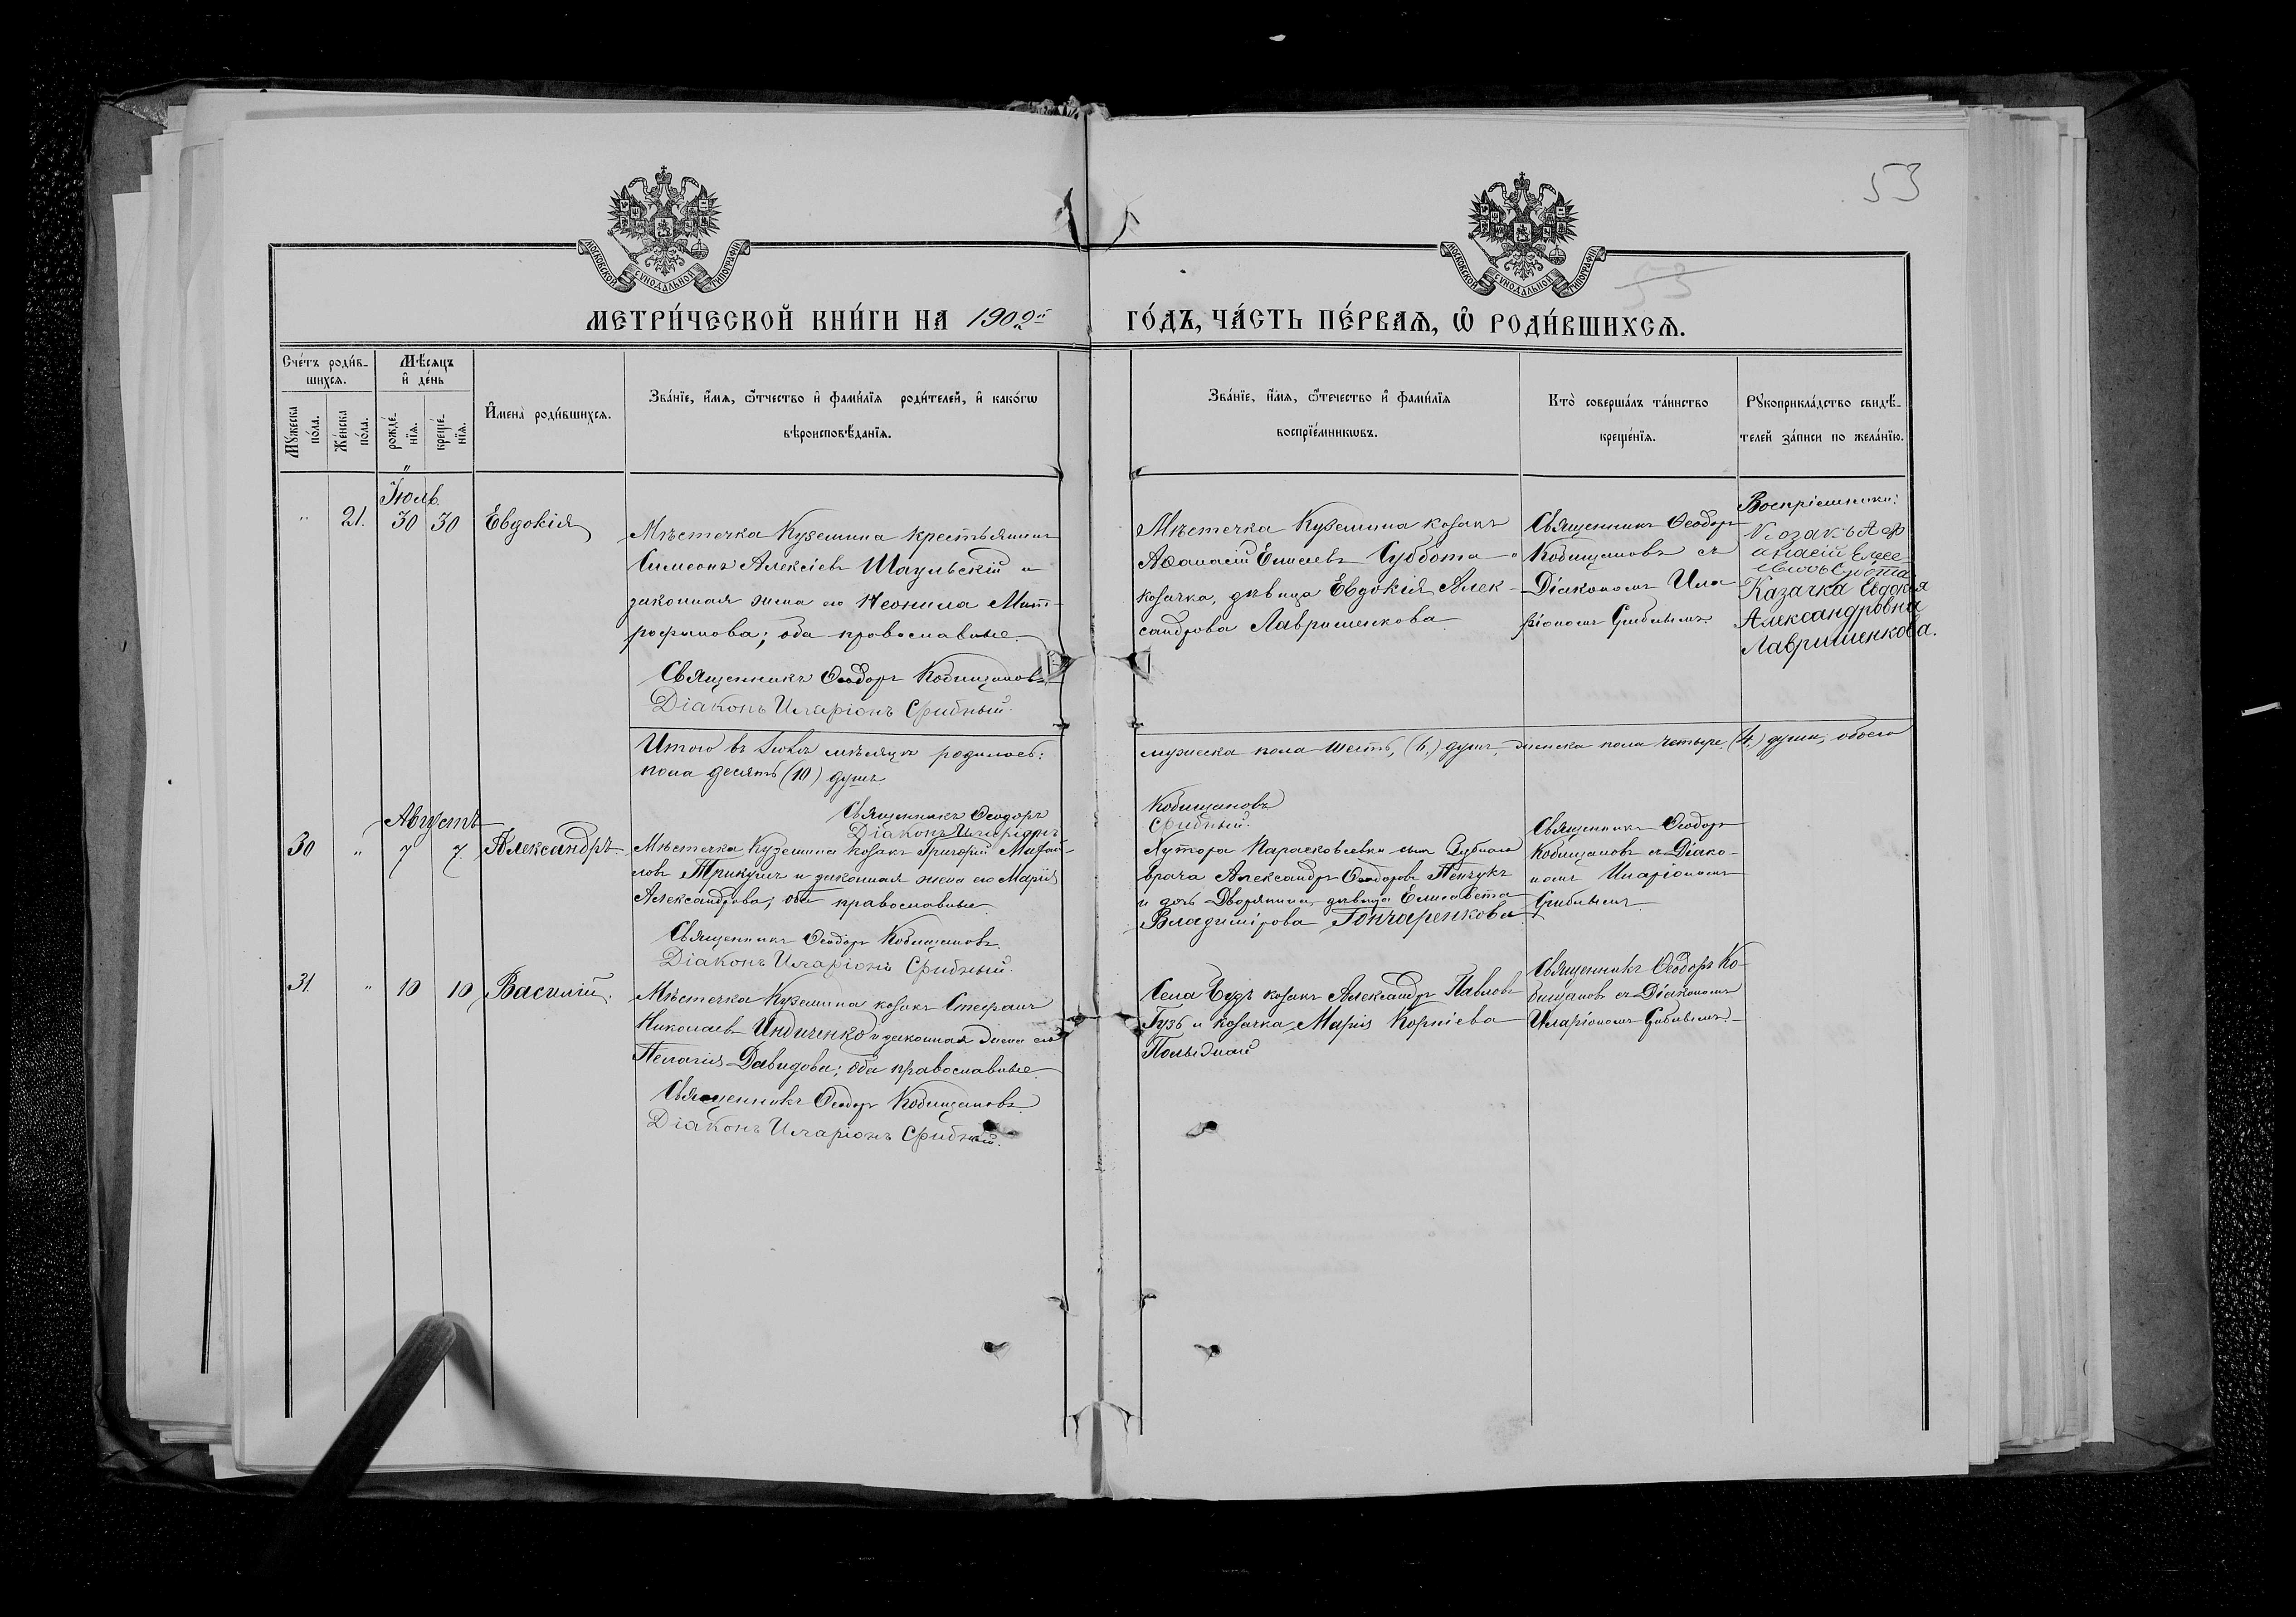 53
МОСКОВСКОЙ СУНОДАЛЬНОЙ ТИПОГРАФІИ
МОСКОВСКОЙ СУНОДАЛЬНОЙ ТИПОГРАФІИ
53
МЕТРИ́ЧЕСКОЙ КНИ́ГИ НА 1902й ГО́ДЪ, ЧА́СТЬ ПЕ́РВАЯ, Ѡ РОДИ́ВШИХСЯ.
Сче́тъ роди́в-
шихся.
Мꙋжеска по́ла.
Же́нска по́ла.
Мѣсяцъ
и де́нь
рожде́-
нїя.
креще́-
нїя.
Имена̀ роди́вшихся.
Зва́нїе, и́мя, ѻ́тчество и фами́лїя роди́телей, и како́гѡ
вѣроисповѣ́данїя.
Зва́нїе, и́мя, ѻ́течество и фами́лїя
воспрїе́мникѡвъ.
Кто̀ соверша́лъ та́инство
креще́нїя.
Рꙋкоприкла́дство свидѣ́-
телей за́писи по жела́нїю.
Іюль
" 21. 30 30 Евдокія
Мѣстечка Куземина крестьянинъ
Симеонъ Алексіевъ Шаульскій и
законная жена его Неонила Мит-
рофанова; оба православные.
Священникъ Ѳеодоръ Кобищановъ
Діаконъ Иларіонъ Срибный.
Мѣстечка Куземина козакъ
Аѳанасій Елисеевъ Суббота и
козачка, дѣвица Евдокія Алек-
сандрова Лавришенкова
Священникъ Ѳеодоръ
Кобищановъ съ
Діакономъ Ила-
ріономъ Срибнымъ
Воспріемники:
Козакъ Аф
анасій Елесе
Казачка Евдокія
Александровна
Лавришенкова.
Итого въ Іюлѣ мѣсяцѣ родилось: мужеска пола шесть, (6,) душъ, женска пола четыре (4,) души, обоего
пола десять (10) душъ.
Священникъ Ѳеодоръ Кобищановъ
Діаконъ Иларіонъ Срибный.
Августъ
30 " 7 7. Александръ
Мѣстечка Куземина козакъ Григорій Михаи-
ловъ Трикузъ и законная жена его Марія
Александрова; оба православные
Священникъ Ѳеодоръ Кобищановъ.
Діаконъ Иларіонъ Срибный.
Хутора Парасковѣевки сынъ Зубнаго
врача Александръ Ѳеодоровъ Пенчукъ
и дочь Дворянина, дѣвица Елисавета
Владимірова Гончаренкова
Священникъ Ѳеодоръ
Кобищановъ съ Діако-
номъ Иларіономъ
Срибнымъ
31. " 10 10 Василій.
Мѣстечка Куземина козакъ Стефанъ
Николаевъ Индиченко и законная жена его
Пелагія Давидова; оба православные.
Священникъ Ѳеодоръ Кобищановъ
Діаконъ Иларіонъ Срибный.
Села Будъ козакъ Александръ Павловъ
Гузь и козачка Марія Корніева
Священникъ Ѳеодоръ Ко-
бищановъ съ Діакономъ
Иларіономъ Срибнымъ.